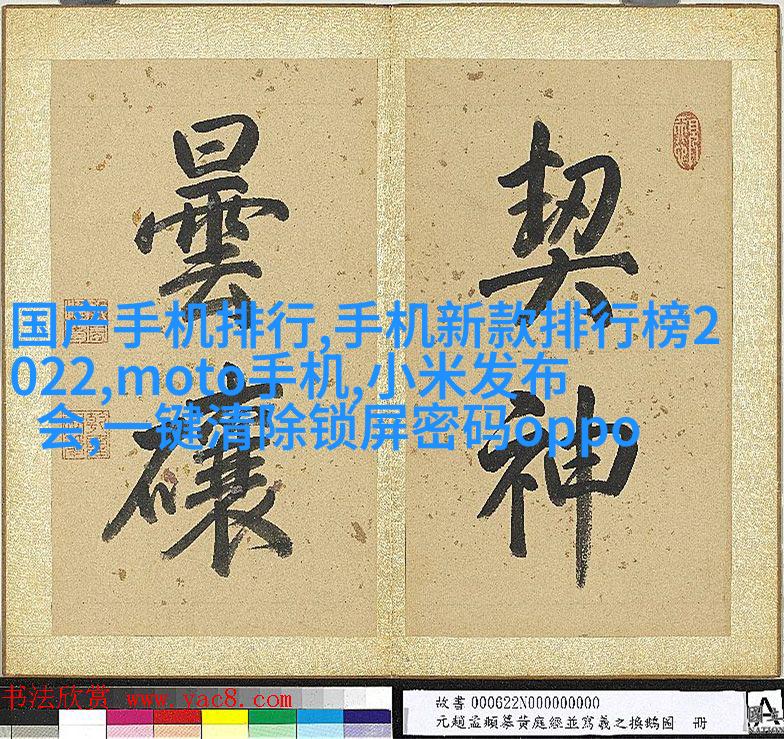 契神
曇
国产手机排行,手机新款排行榜2
022,moto手机,小米发布
会,一键清除锁屏密码oppo
书法欣赏 www.yac8.com
故書000622N000000000
元趙孟頫摹黃庭經並寫羲之換鵝圖 冊